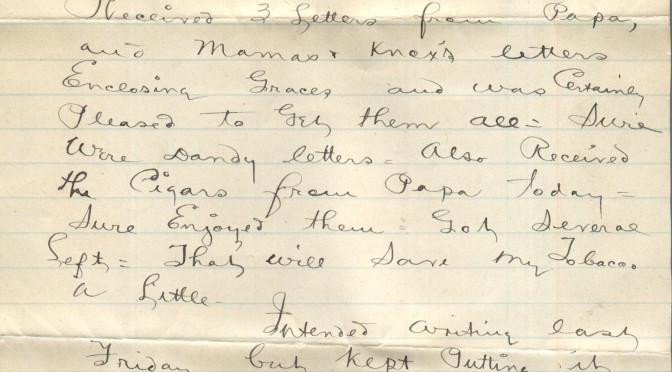 Received 3 Letters from Papa,
and Mamas & Knox's letters
Enclosing Graces and was Certainly
Pleased to Get them all = Sure
Were Dandy letters = Also Received
the Cigars from Papa Today =
Sure Enjoyed them = Got Several
Left = That will Save my Tobacco
a Little.
Intended writing last
Friday but kept Putting it